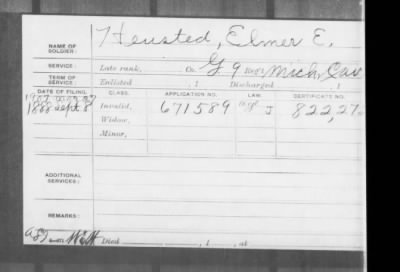 NAME OF SOLDIER: Heusted, Elmer E.
SERVICE: Late rank, Co. G, 9 Reg't Mich. Cav
TERM OF SERVICE: Enlisted , 1 Discharged , 1
DATE OF FILING. CLASS. APPLICATION NO. LAW. CERTIFICATE NO.
1888 Sept 8 Invalid, 671589 J 822,27
Widow,
Minor,
ADDITIONAL SERVICES:
REMARKS:
Died , 1 , at